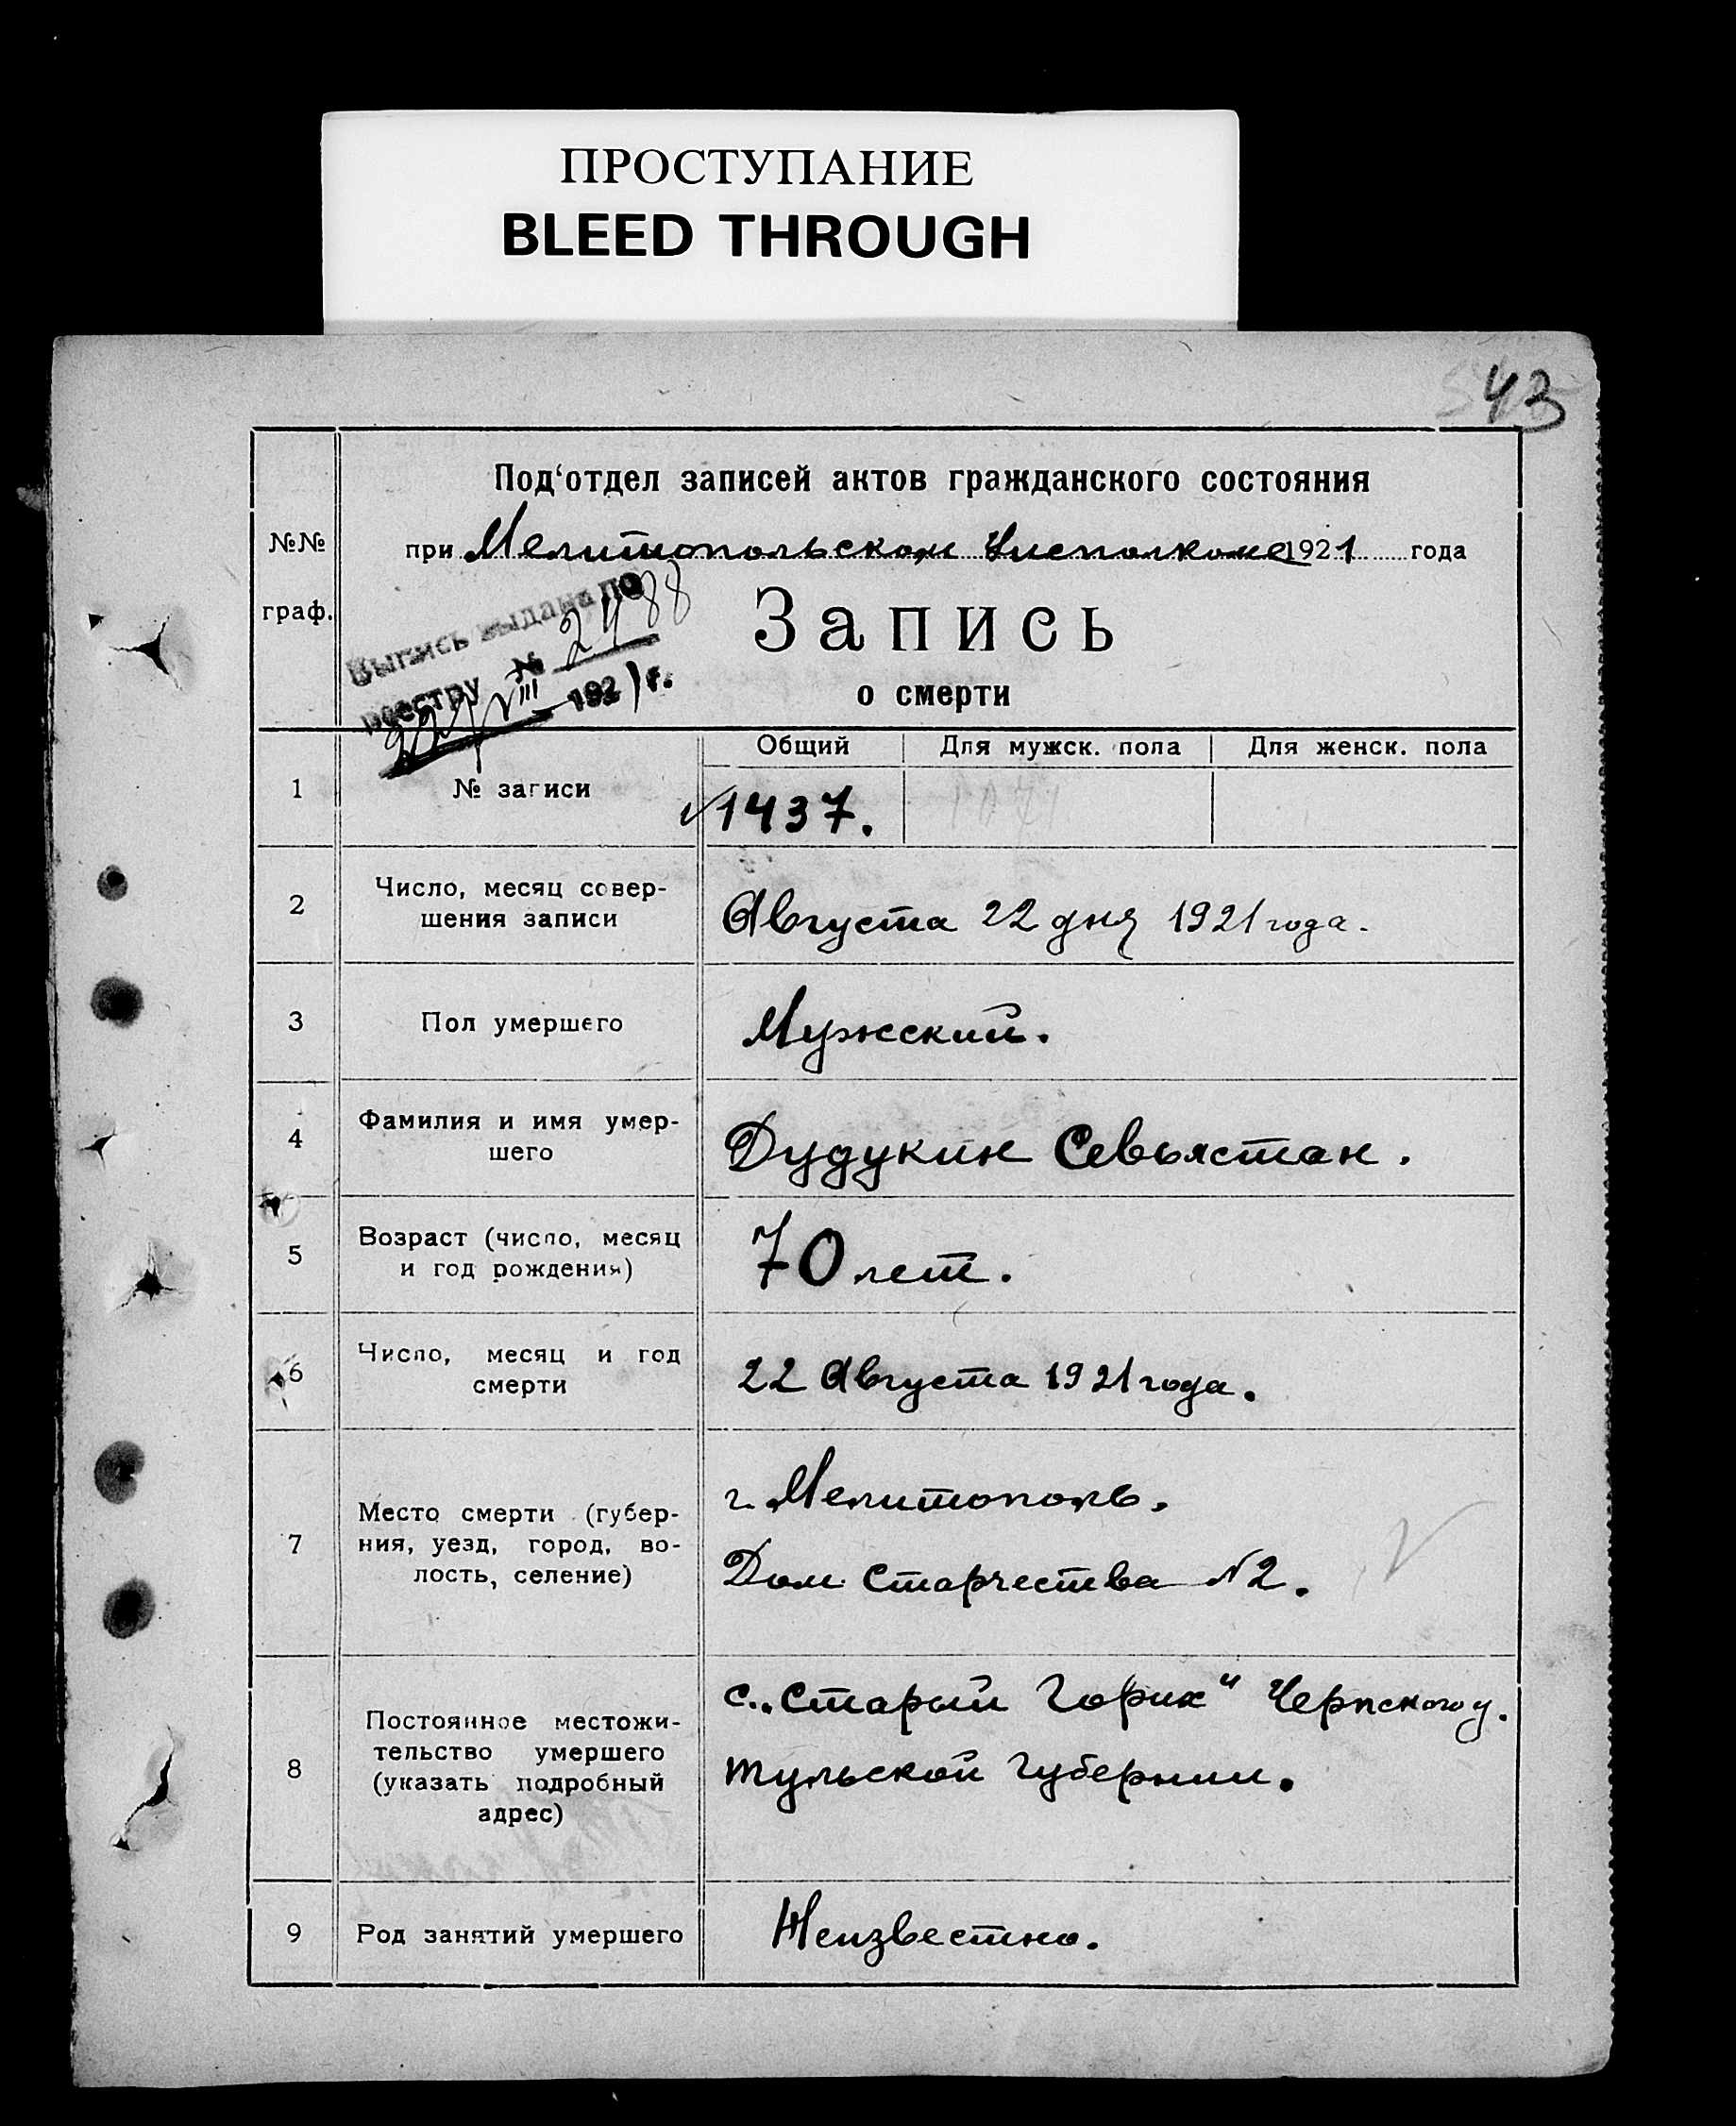 ПРОСТУПАНИЕ
BLEED THROUGH
43
Под‘отдел записей актов гражданского состояния
№№
граф.
при Мелитопольском Исполкоме 1921 года
Выпись выдана по
реестру № 2488
22/VIII 1921 г.
Запись
о смерти
Общий Для мужск. пола Для женск. пола
1 № записи 1437.
2 Число, месяц совер-
шения записи
Августа 22 дня 1921 года.
3 Пол умершего Мужский.
4 Фамилия и имя умер-
шего
Дудукин Севьястан.
5 Возраст (число, месяц
и год рождения)
70 лет.
6 Число, месяц и год
смерти
22 Августа 1921 года.
7 Место смерти (губер-
ния, уезд, город, во-
лость, селение)
г. Мелитополь.
Дом Старчества №2.
8 Постоянное местожи-
тельство умершего
(указать подробный
адрес)
с. „Старый Горик" Черпского у.
Тульской Губернии.
9 Род занятий умершего Неизвестно.